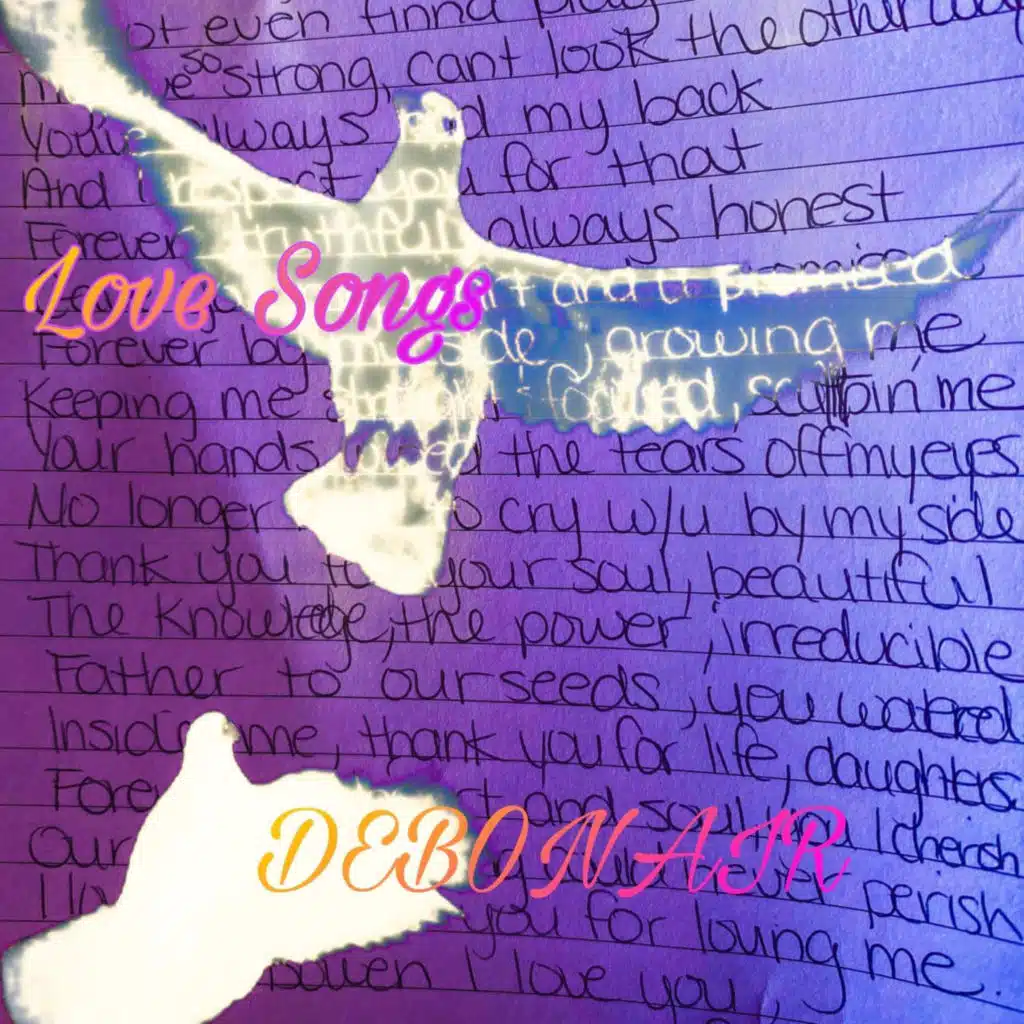 ot even finna play
so strong, cant look the other way
You've always d my back
And i respect you for that
Forever truthful, always honest
it and u promised
Love Songs
Forever by my side, growing me
Keeping me straight, focused, sculptin' me
Your hands wiped the tears off my eyes
No longer to cry w/u by my side
Thank you to your soul, beautiful
The Knowledge, the power, irreducible
Father to our seeds, you watered
Inside me, thank you for life, daughters
Fore and soul you I cherish
DEBONAIR
Our never perish
I lov you for loving me.
bowen I love you,